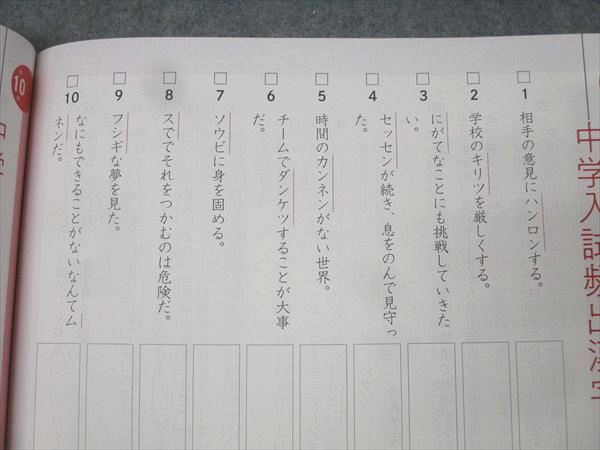 中学入試頻出漢字
1
相手の意見にハンロンする。
2
学校のキリツを厳しくする。
3
にがてなことにも挑戦していきた
い。
4
セッセンが続き、息をのんで見守っ
た。
5
時間のカンネンがない世界。
6
チームでダンケツすることが大事
だ。
7
ソウビに身を固める。
8
スででそれをつかむのは危険だ。
9
フシギな夢を見た。
10
なにもできることがないなんてム
ネンだ。
10